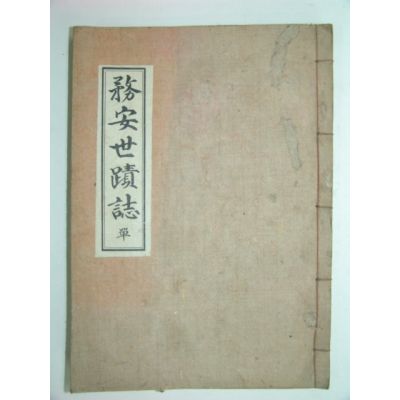 務安世蹟誌 單